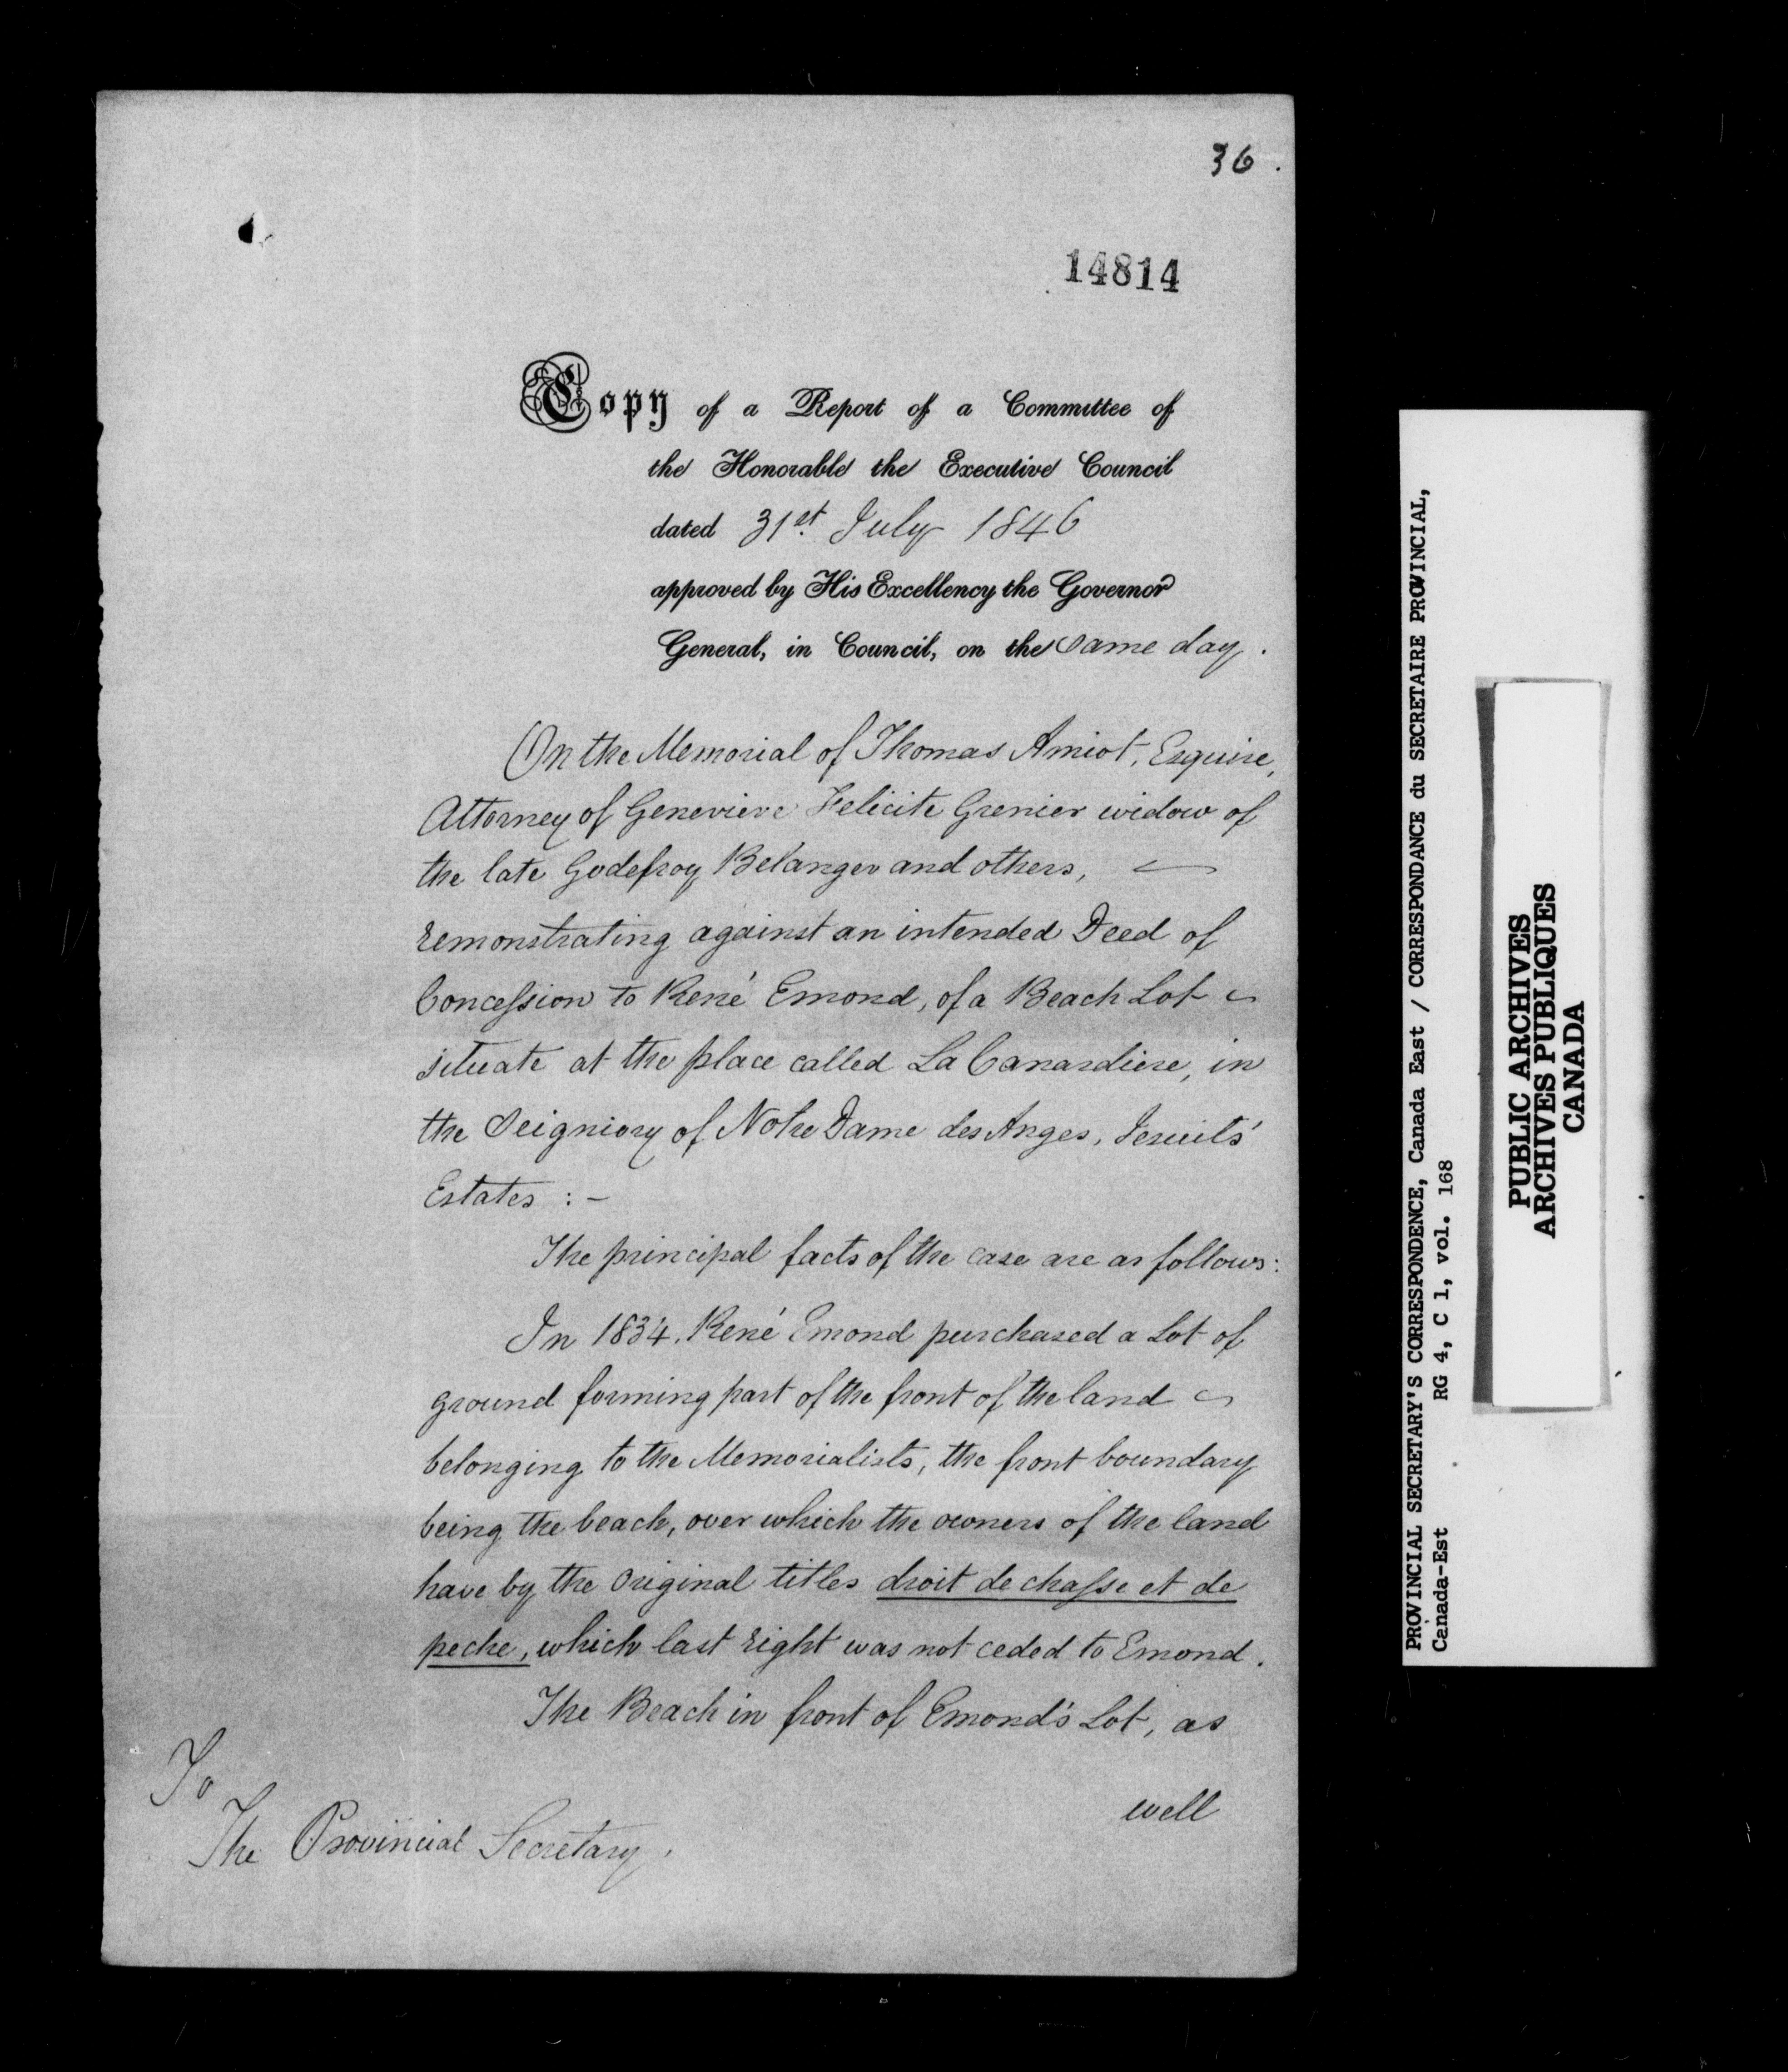 36.
14814
Copy of a Report of a Committee of
the Honorable the Executive Council
dated 31st July 1846
approved by His Excellency the Governor
General, in Council, on the same day.
On the Memorial of Thomas Amiot, Esquire,
Attorney of Genevieve Felicite Grenier widow of
the late Godefroy Belanger and others,
remonstrating against an intended Deed of
Concession to René Emond, of a Beach Lot
situate at the place called La Canardiere, in
the Seigniory of Notre Dame des Anges, Jesuits'
Estates :-
The principal facts of the case are as follows:
In 1834. René Emond purchased a Lot of
ground forming part of the front of the land
belonging to the Memorialists, the front boundary
being the beach, over which the owners of the land
have by the Original titles droit de chasse et de
peche, which last right was not ceded to Emond.
The Beach in front of Emond's Lot, as
well
To
The Provincial Secretary.
PROVINCIAL SECRETARY'S CORRESPONDENCE, Canada East / CORRESPONDANCE du SECRETAIRE PROVINCIAL,
Canada-Est RG 4, C 1, vol. 168
PUBLIC ARCHIVES
ARCHIVES PUBLIQUES
CANADA